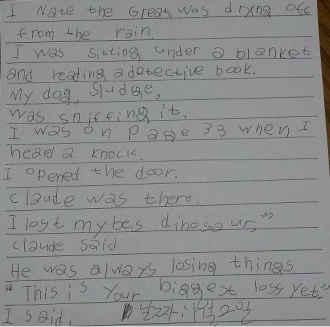 I Nate the Great, was drying off
from the rain.
I was sitting under a blanket
and reading a detective book.
My dog, Sludge,
was sniffing it.
I was on page 33 when I
heard a knock.
I opened the door.
Claude was there.
I lost my bes dinosaur,"
Claude said
He was always losing things.
"This is your biggest loss yet,"
I said.